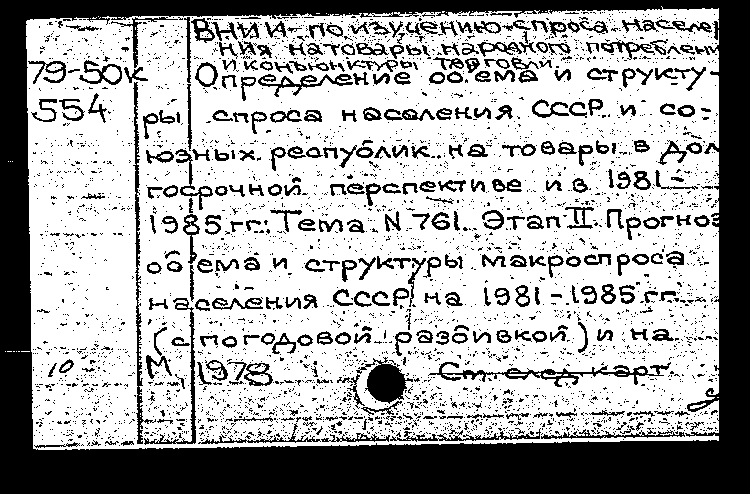 ВНИИ по изучению спроса населе
ния на товары народного потреблени
и конъюнктуры торговли.
79-50к Определение объема и структу-
554 ры спроса населения СССР и со-
юзных республик на товары в дол
госрочной перспективе и в 1981-
1985 гг.: Тема N 761. Этап II. Прогноз
объема и структуры макроспроса
населения СССР на 1981-1985 гг.
(с погодовой разбивкой) и на
10 М, 1978 См. след карт